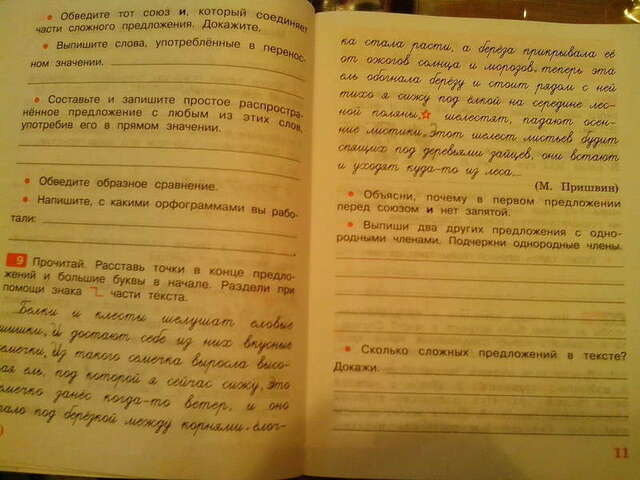 • Обведите тот союз и, который соединяет
части сложного предложения. Докажите.
• Выпишите слова, употреблённые в перенос-
ном значении.
• Составьте и запишите простое распростра-
нённое предложение с любым из этих слов,
употребив его в прямом значении.
• Обведите образное сравнение.
• Напишите, с какими орфограммами вы рабо-
тали:
9 Прочитай. Расставь точки в конце предло-
жений и большие буквы в начале. Раздели при
помощи знака части текста.
Белки и клесты шелушат еловые
шишки, И достают себе из них вкусные
семечки, Из такого семечка выросла высо-
ая ель, под которой я сейчас сижу, это
семечко занёс когда-то ветер, и оно
пало под берёзкой между корнями. ёлоч-
ка стала расти, а берёза прикрывала её
от ожогов солнца и морозов, теперь эта
ель обогнала берёзу и стоит рядом с ней
тихо я сижу под ёлкой на середине лес-
ной поляны, шелестят, падают осен-
ние листики, Этот шелест листьев будит
спящих под деревьями зайцев, они встают
и уходят куда-то из леса...
(М. Пришвин)
• Объясни, почему в первом предложении
перед союзом и нет запятой.
• Выпиши два других предложения с одно-
родными членами. Подчеркни однородные члены.
• Сколько сложных предложений в тексте?
Докажи.
11